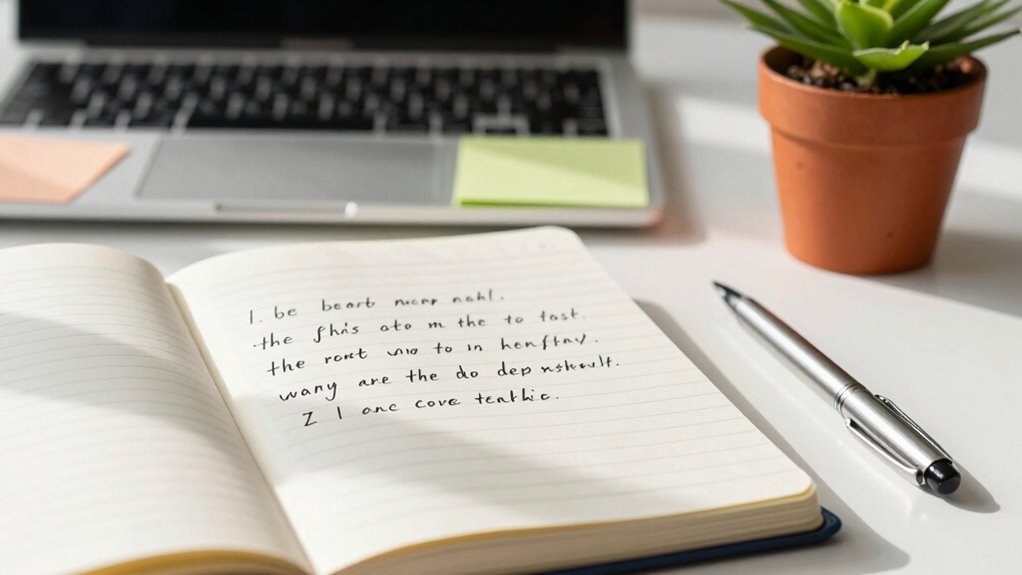 1. be beart nucrp nohl.
the fhis ato m the to fast.
the rort wio to in henftny.
wany are the do dep nskwult.
Z I anc cove tenthic.